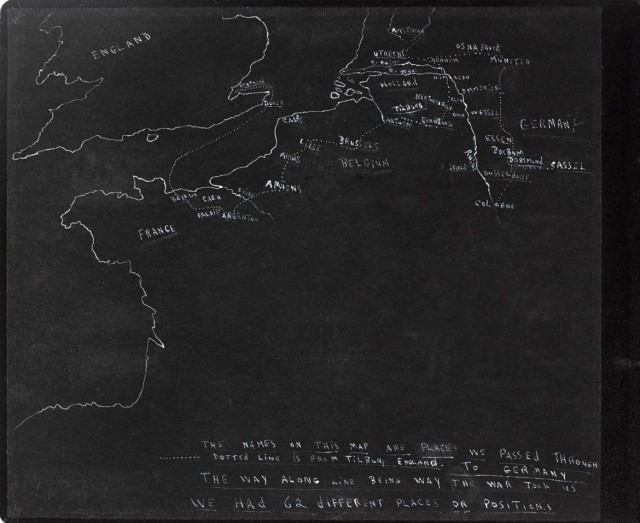 ENGLAND
AMSTERDAM
UTRECHT
OSNABRUCK
ARNHEM
MUNSTER
HOLLAND
EMMERICH
TILBURG
WESSEL
GERMANY
DOVER
CALAIS
ESSEN
LILLE
BRUSSELS
BOCHUM
DORTMUND
CASSEL
BELGIUM
DUSSELDORF
AMIENS
COLOGNE
BAYEUX
CAEN
FALAISE
ARGENTON
FRANCE
THE NAMES ON THIS MAP ARE PLACES WE PASSED THROUGH
DOTTED LINE IS FROM TILBURY, ENGLAND. TO GERMANY
THE WAY ALONG LINE BEING WAY THE WAR TOOK US
WE HAD 62 DIFFERENT PLACES OR POSITIONS